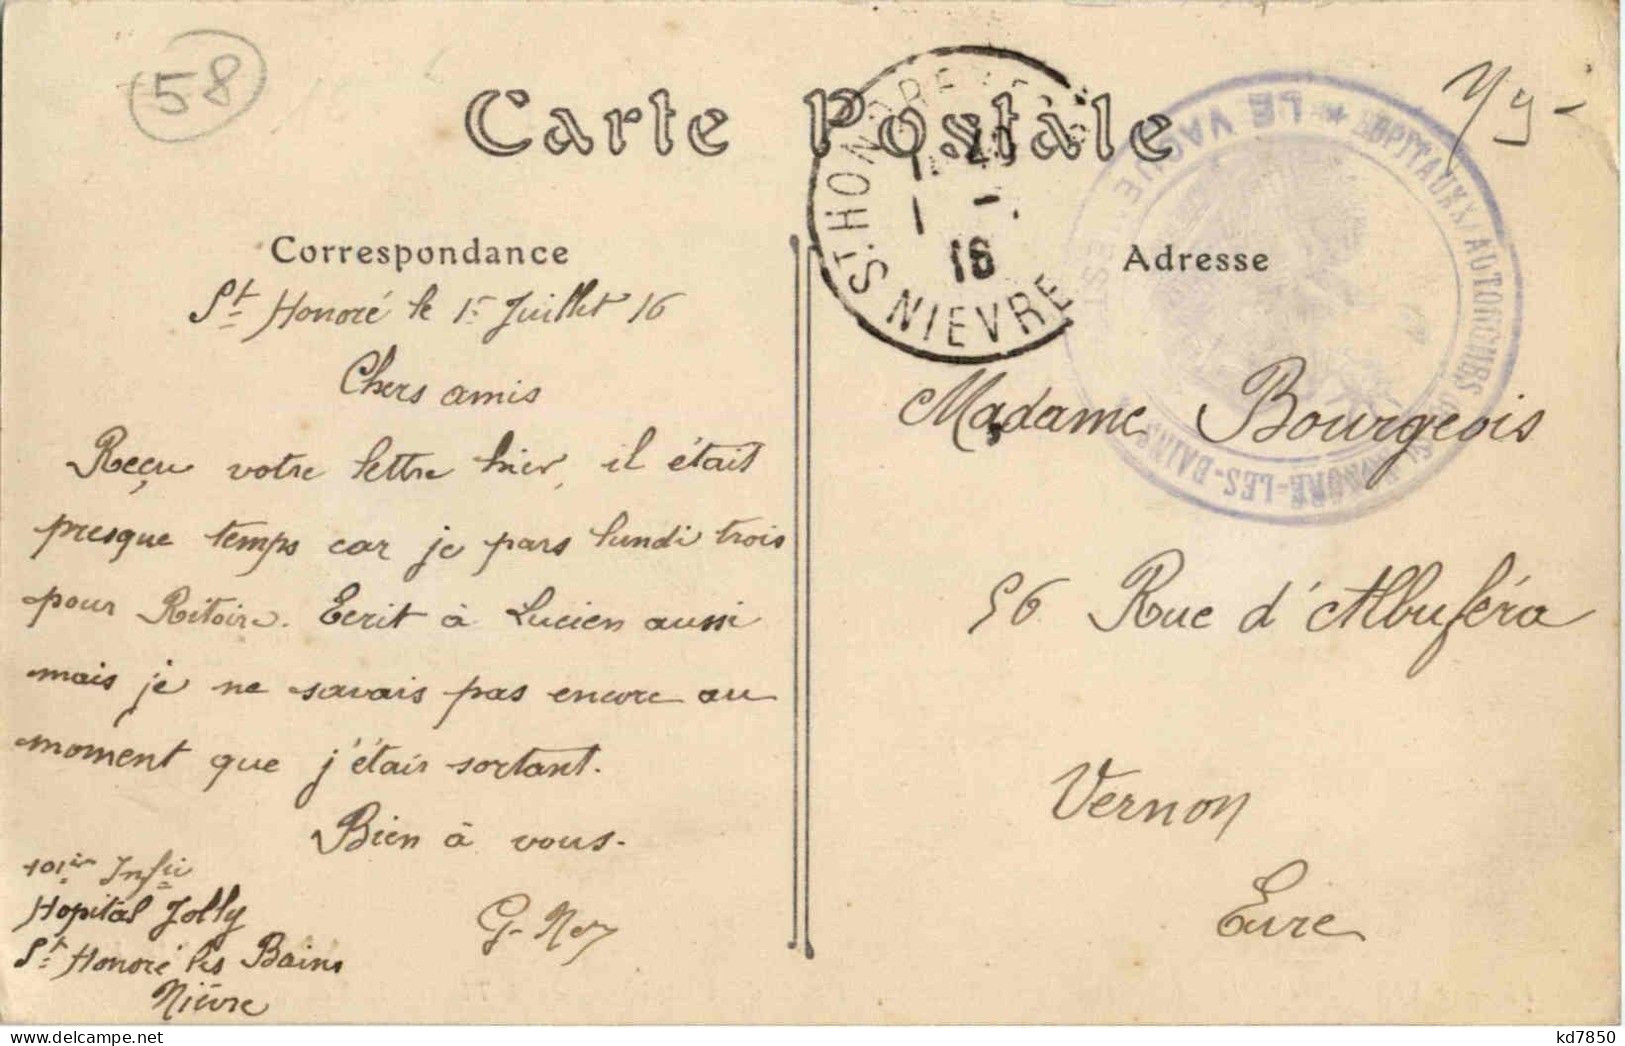 58
Carte Postale
Correspondance
St Honoré le 1er Juillet 16
Chers amis
Reçu votre lettre hier, il était
presque temps car je pars lundi trois
pour Ritoire. Ecrit à Lucien aussi
mais je ne savais pas encore au
moment que j'étais sortant.
Bien à vous.
G. Ney
101ième Infie
Hopital Jolly
St Honoré les Bains
Nièvre
ST HONORE
NIEVRE
16
HOPITAUX AUTONOMES
LES-BAINS
LE VAGUEMEST
Adresse
Madame Bourgeois
56 Rue d'Albuféra
Vernon
Eure
kd7850